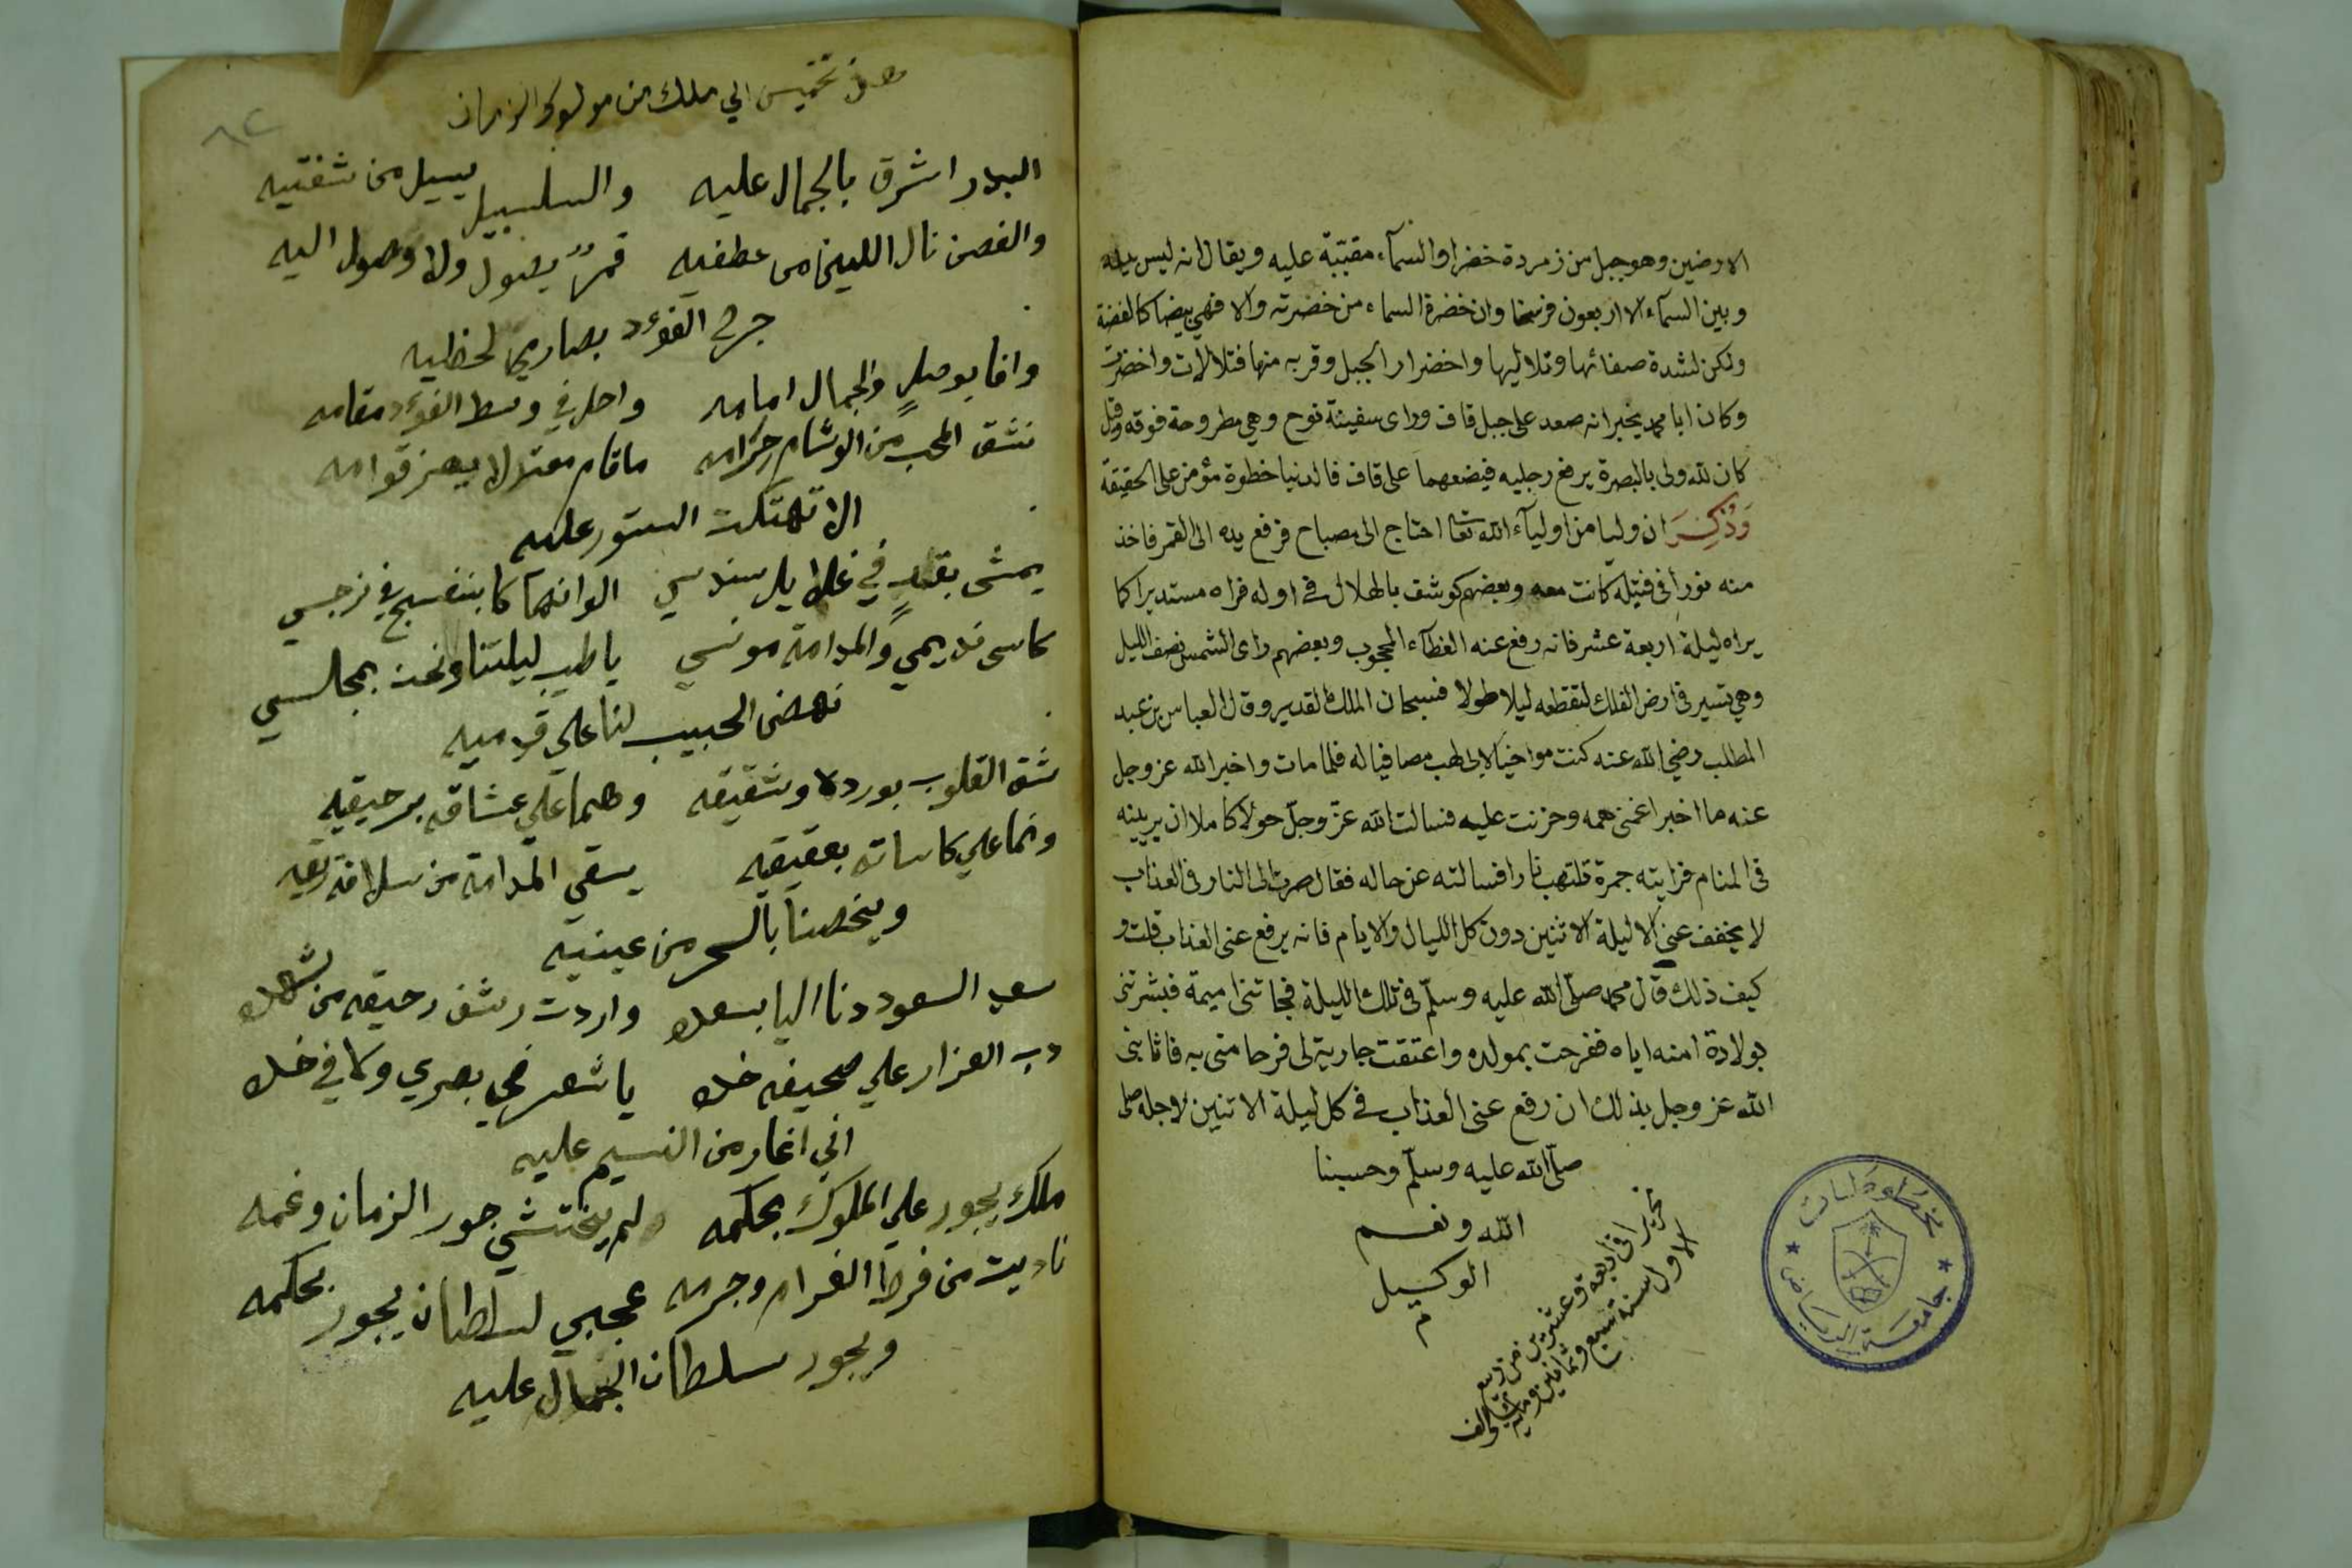 الارضين وهو جبل من زمردة خضرا والسمآء مقببة عليه ويقال انه ليس بينه
وبين السمآء الا اربعون فرسخا وان خضرة السماء من خضرته والا فهي بيضا كالفضة
ولكن لشدة صفائها وتلاليها واخضرار الجبل وقربه منها فتلالات واخضرت
وكان ابا محمد يخبر انه صعد على جبل قاف وراى سفينة نوح وهي مطروحة فوقه وقيل
كان لله ولي بالبصرة يرفع رجليه فيضعهما على قاف فالدنيا خطوة مؤمن على الحقيقة
وَذُكِرَ ان وليا من اوليآء الله تعا احتاج الى مصباح فرفع يده الى القمر فاخذ
منه نورا في فتيلة كانت معه وبعضهم كوشف بالهلال في اوله فراه مستديرا كما
يراه ليلة اربعة عشر فانه رفع عنه الغطآء المحجوب وبعضهم راى الشمس نصف الليل
وهي تسير في ارض الفلك لتقطعه ليلا طولا فسبحان الملك القدير وقال العباس بن عبد
المطلب رضي الله عنه كنت مواخيا لابي لهب مصافيا له فلما مات واخبر الله عز وجل
عنه ما اخبر اغمني همه وحزنت عليه فسالت الله عزّ وجلّ حولا كاملا ان يرينيه
في المنام فرايته جمرة تلتهب نارا فسالته عن حاله فقال صرت الى النار في العذاب
لا يخفف عني الا ليلة الاثنين دون كل الليال والايام فانه يرفع عني العذاب قلت و
كيف ذلك قال محمد صلّى الله عليه وسلّم في تلك الليلة فجاتنى اميمة فبشرتني
بولادة امنه اياه ففرحت بمولده واعتقت جارية لى فرحا منى به فاثابنى
الله عز وجل بذلك ان رفع عنى العذاب في كل ليلة الاثنين لاجله صلى
صلّى الله عليه وسلّم وحسبنا
الله ونعم
الوكيل
م
تحريرا في اربعة وعشرين من ربيع
الاول سنة تسع وثمانين ومايه والف
مخطوطات
جامعة الرياض
٨٢
تخميس الي ملك من مولوك الزمان
البدر اشرق بالجمال عليه والسلسبيل يسيل من شفتيه
والغصن نال اللين من عطفيه قمرٌ يصول ولا وصول اليه
جرح الفوءد بصارمي لحظيه
وافا بوصلٍ والجمال امامه واحل في وسط الفوءد مقامه
ما قام معتدلا يهز قوامه
الا تهتكت الستور عليه
يمشى بقدٍ في غلايل سندسي الوانهما كا بنفسج في نرجسي
كاسى نديمي والمدامة مونسي يا طيب ليلتنا ونحن بمجلسي
نهض الحبيب لنا علي قدميه
شق القلوب بورده وشقيقه وهما علي عشاقه برحيقه
ونما علي كاساته بعقيقه يسقي المدامة من سلافة ريقه
ويخصنا بالسحر من عينيه
سعد السعود دنا الينا بسعده واردت رشف رحيقه من شهده
دب العزار علي صحيفه خده يا شعر في بصري ولا في خده
اني اغار من النسيم عليه
ملك يجور علي الملوك بحكمه ولم يختشي جور الزمان وغمه
ناديت من فرط الغرام وجرمه عجبي لسلطان يجور بحكمه
ويجور سلطان الجمال عليه